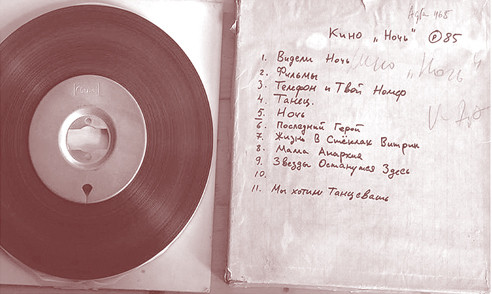 Agfa 468
Кино „Ночь" ℗85
1. Видели Ночь
2. Фильмы
3. Телефон и Твой Номер
4. Танец.
5. Ночь
6. Последний Герой
7. Жизнь В Стёклах Витрин
8. Мама Анархия
9. Звёзды Останутся Здесь
10.
11. Мы хотим Танцевать
Кино „Ночь"